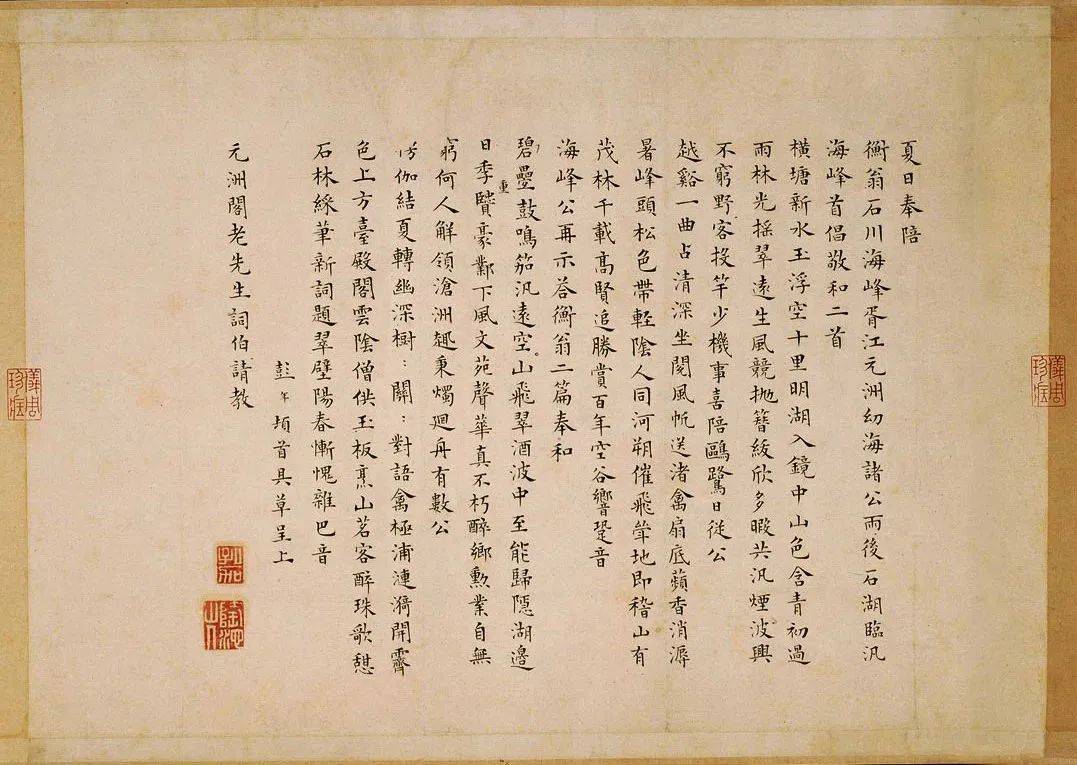 夏日奉陪
衡翁石川海峰胥江元洲幼海諸公雨後石湖臨汎
海峰首倡敬和二首
橫塘新水玉浮空十里明湖入鏡中山色含青初過
雨林光搖翠遠生風競拋簪紱欣多暇共汎煙波興
不窮野客投竿少機事喜陪鷗鷺日從公
越谿一曲占清深坐閱風帆送渚禽扇底蘋香消溽
暑峰頭松色帶輕陰人同河朔催飛斝地即稽山有
茂林千載高賢追勝賞百年空谷響跫音
海峰公再示荅衡翁二篇奉和
碧疊鼓鳴笳汎遠空山飛翠酒波中至能歸隱湖邊
重
日季贒豪鄴下風文苑聲華真不朽醉鄉勲業自無
窮何人解領滄洲趣秉燭迴舟有數公
伽結夏轉幽深樹：關：對語禽極浦漣漪開霽
色上方臺殿閣雲陰僧供玉板烹山茗客醉珠歌憇
石林綵筆新詞題翠壁陽春慚愧雜巴音
彭年頓首具草呈上
元洲閣老先生詞伯請教
儀周
珍藏
儀周
珍藏